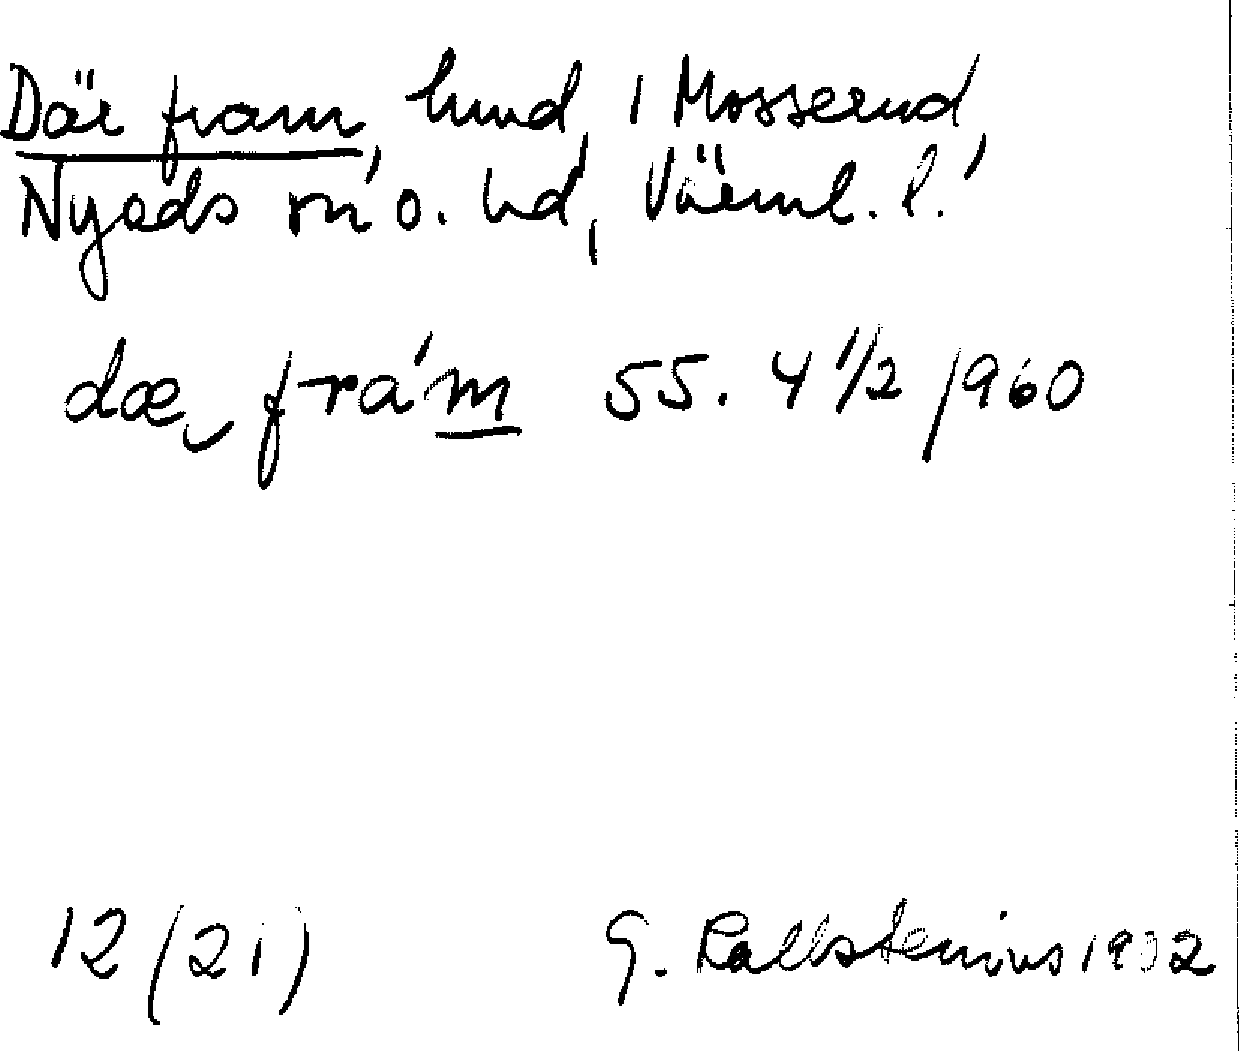 Där fram, hmd, i Mosserud,
Nyeds sn o. hd, Värml. l.
dæ frám 55. 4 1/2 1960
12 (21) G. Kallstenius 1932